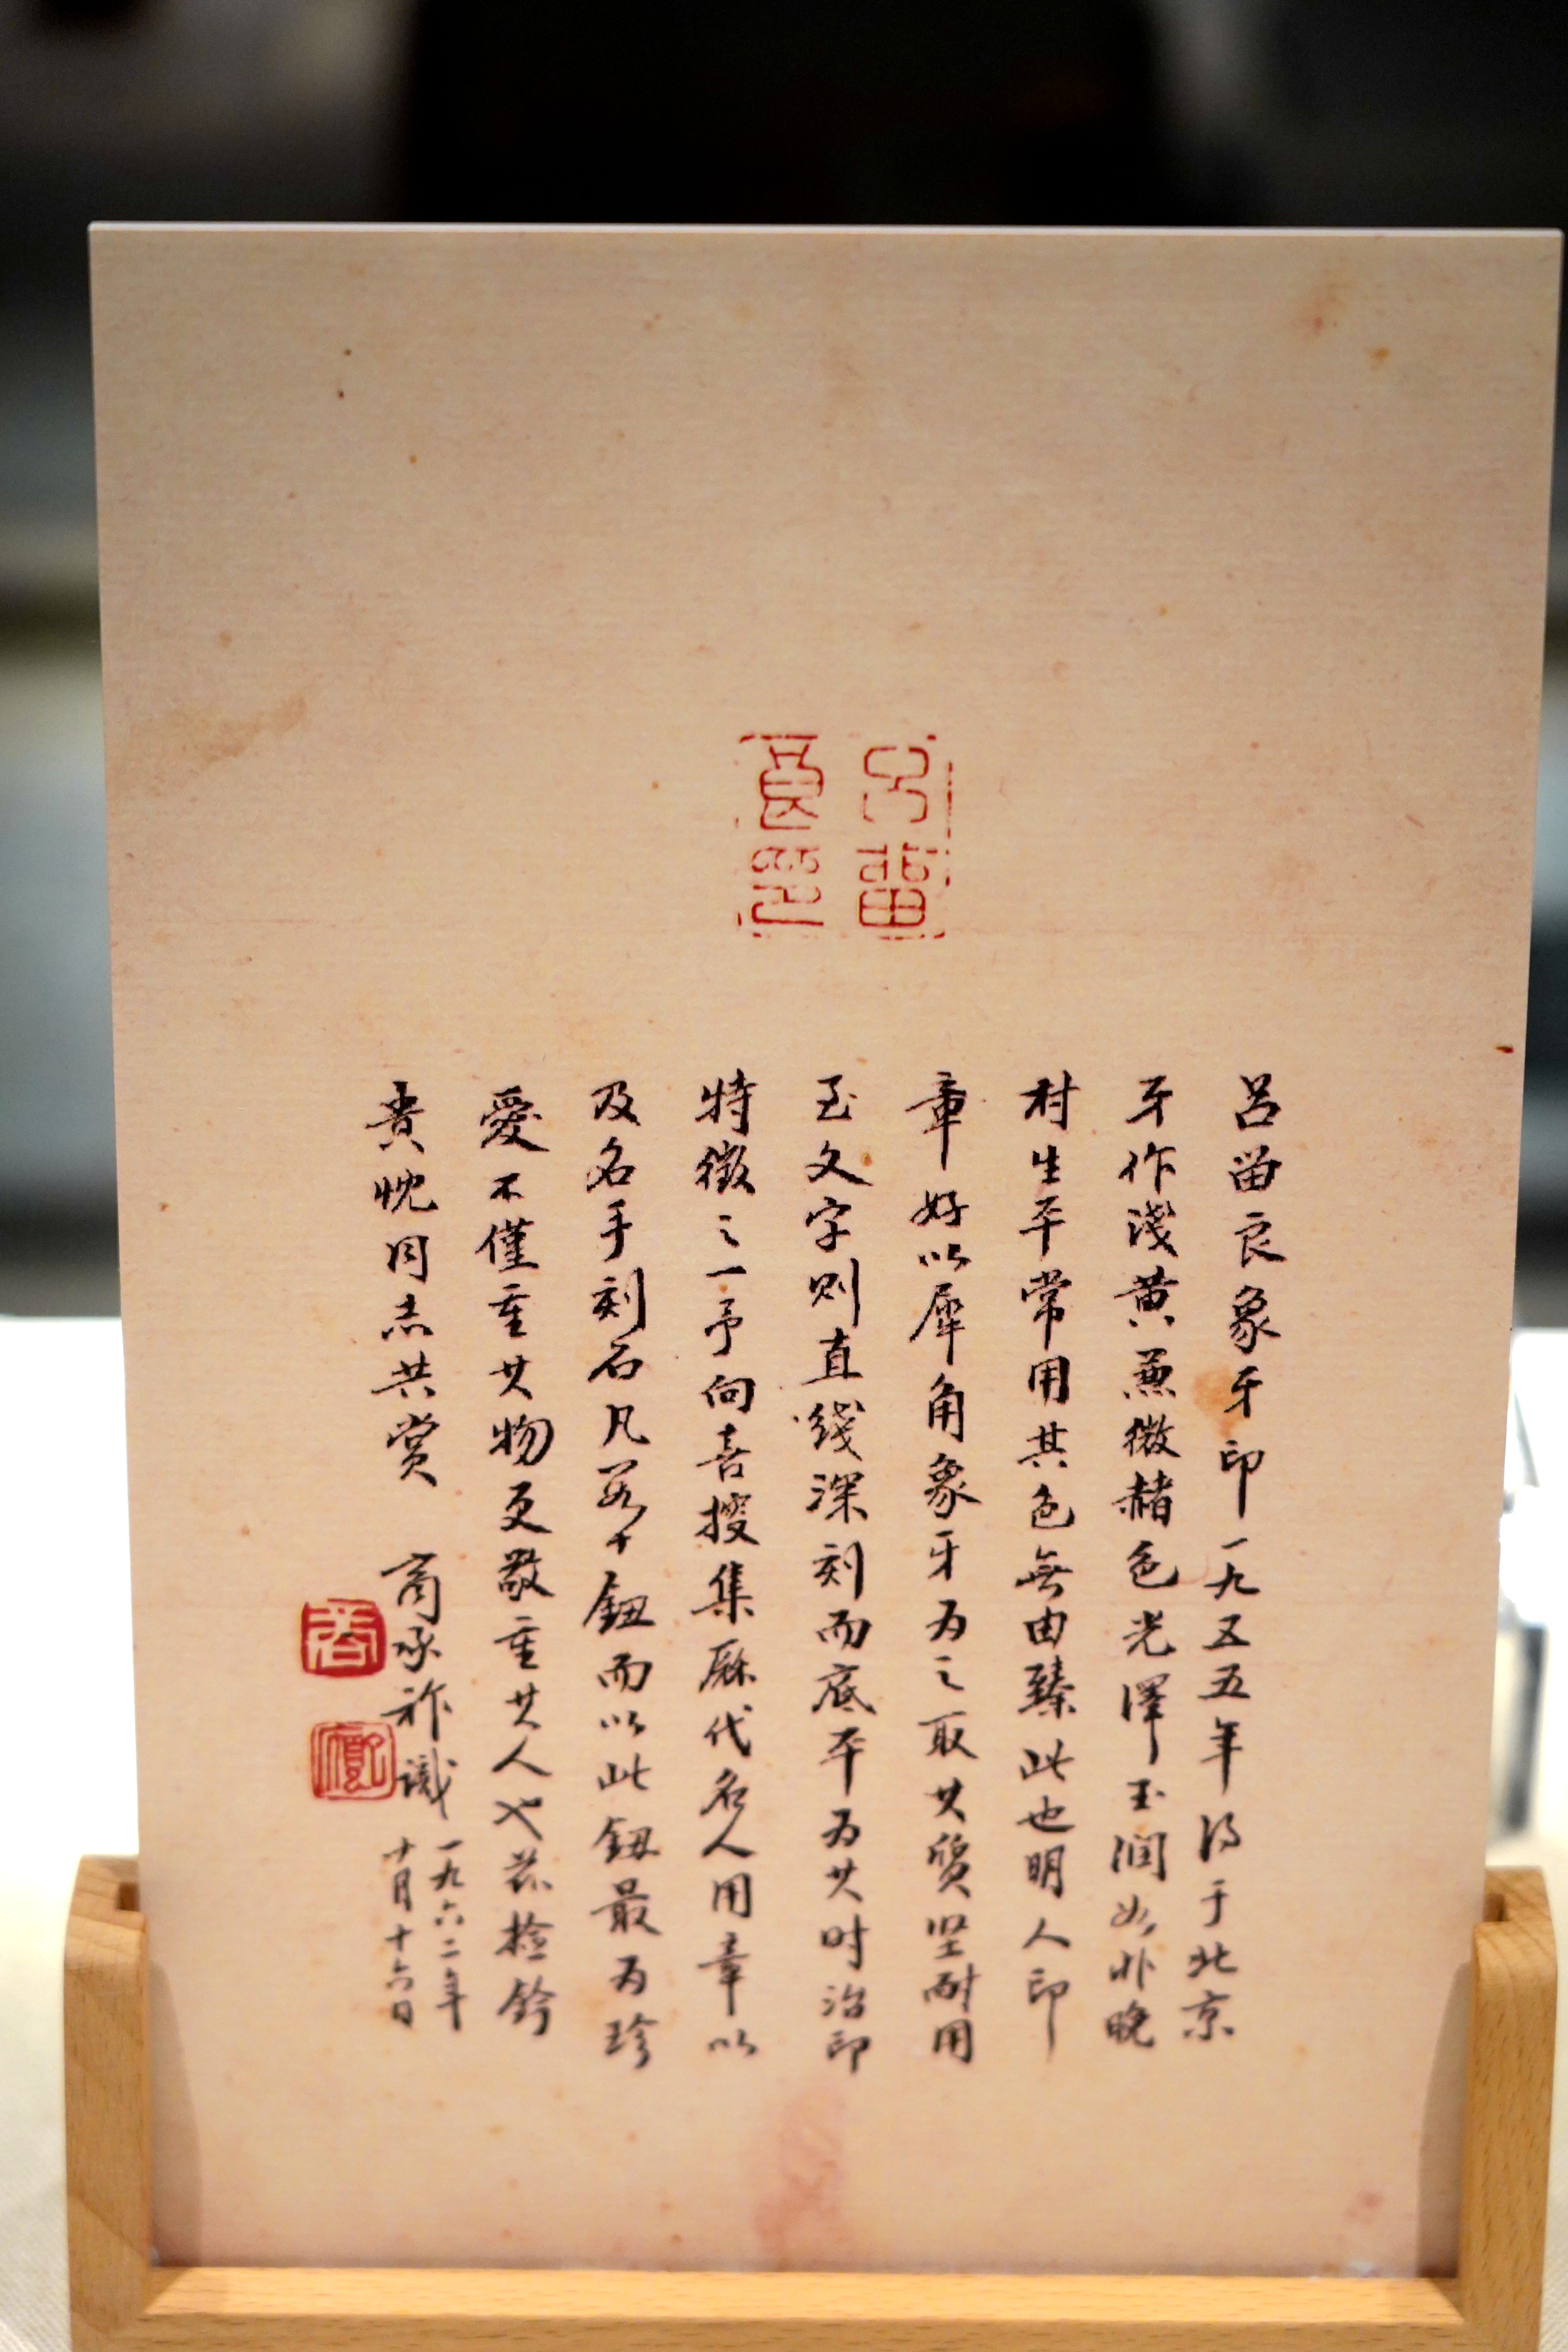 吕留良印
吕留良象牙印一九五五年得于北京
牙作浅黄兼微赭色光泽玉润如非晚
村生平常用其色無由臻此也明人印
章好以犀角象牙为之取其質坚耐用
至文字则直线深刻而底平为其时治印
特徵之一予向喜搜集厯代名人用章以
及名手刻石凡若干鈕而以此鈕最为珍
愛不僅重其物更敬重其人也兹检鈐
贵忱同志共赏
商承祚識
一九六二年
十月十六日